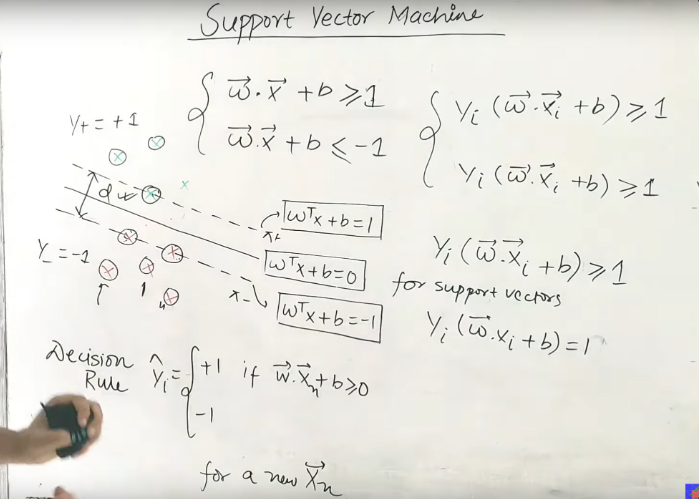 Support Vector Machine
w⃗·x⃗ + b ≥ 1
w⃗·x⃗ + b ≤ -1
y+ = +1
d
y_ = -1
wᵀx+b=1
x+
wᵀx+b=0
x-
wᵀx+b=-1
yᵢ (w⃗·x⃗ᵢ + b) ≥ 1
yᵢ (w⃗·x⃗ᵢ + b) ≥ 1
yᵢ (w⃗·x⃗ᵢ + b) ≥ 1
for support vectors
yᵢ (w⃗·xᵢ + b) = 1
Decision Rule
ŷᵢ = { +1 if w⃗·x⃗ₙ + b ≥ 0
-1
for a new x⃗ₙ